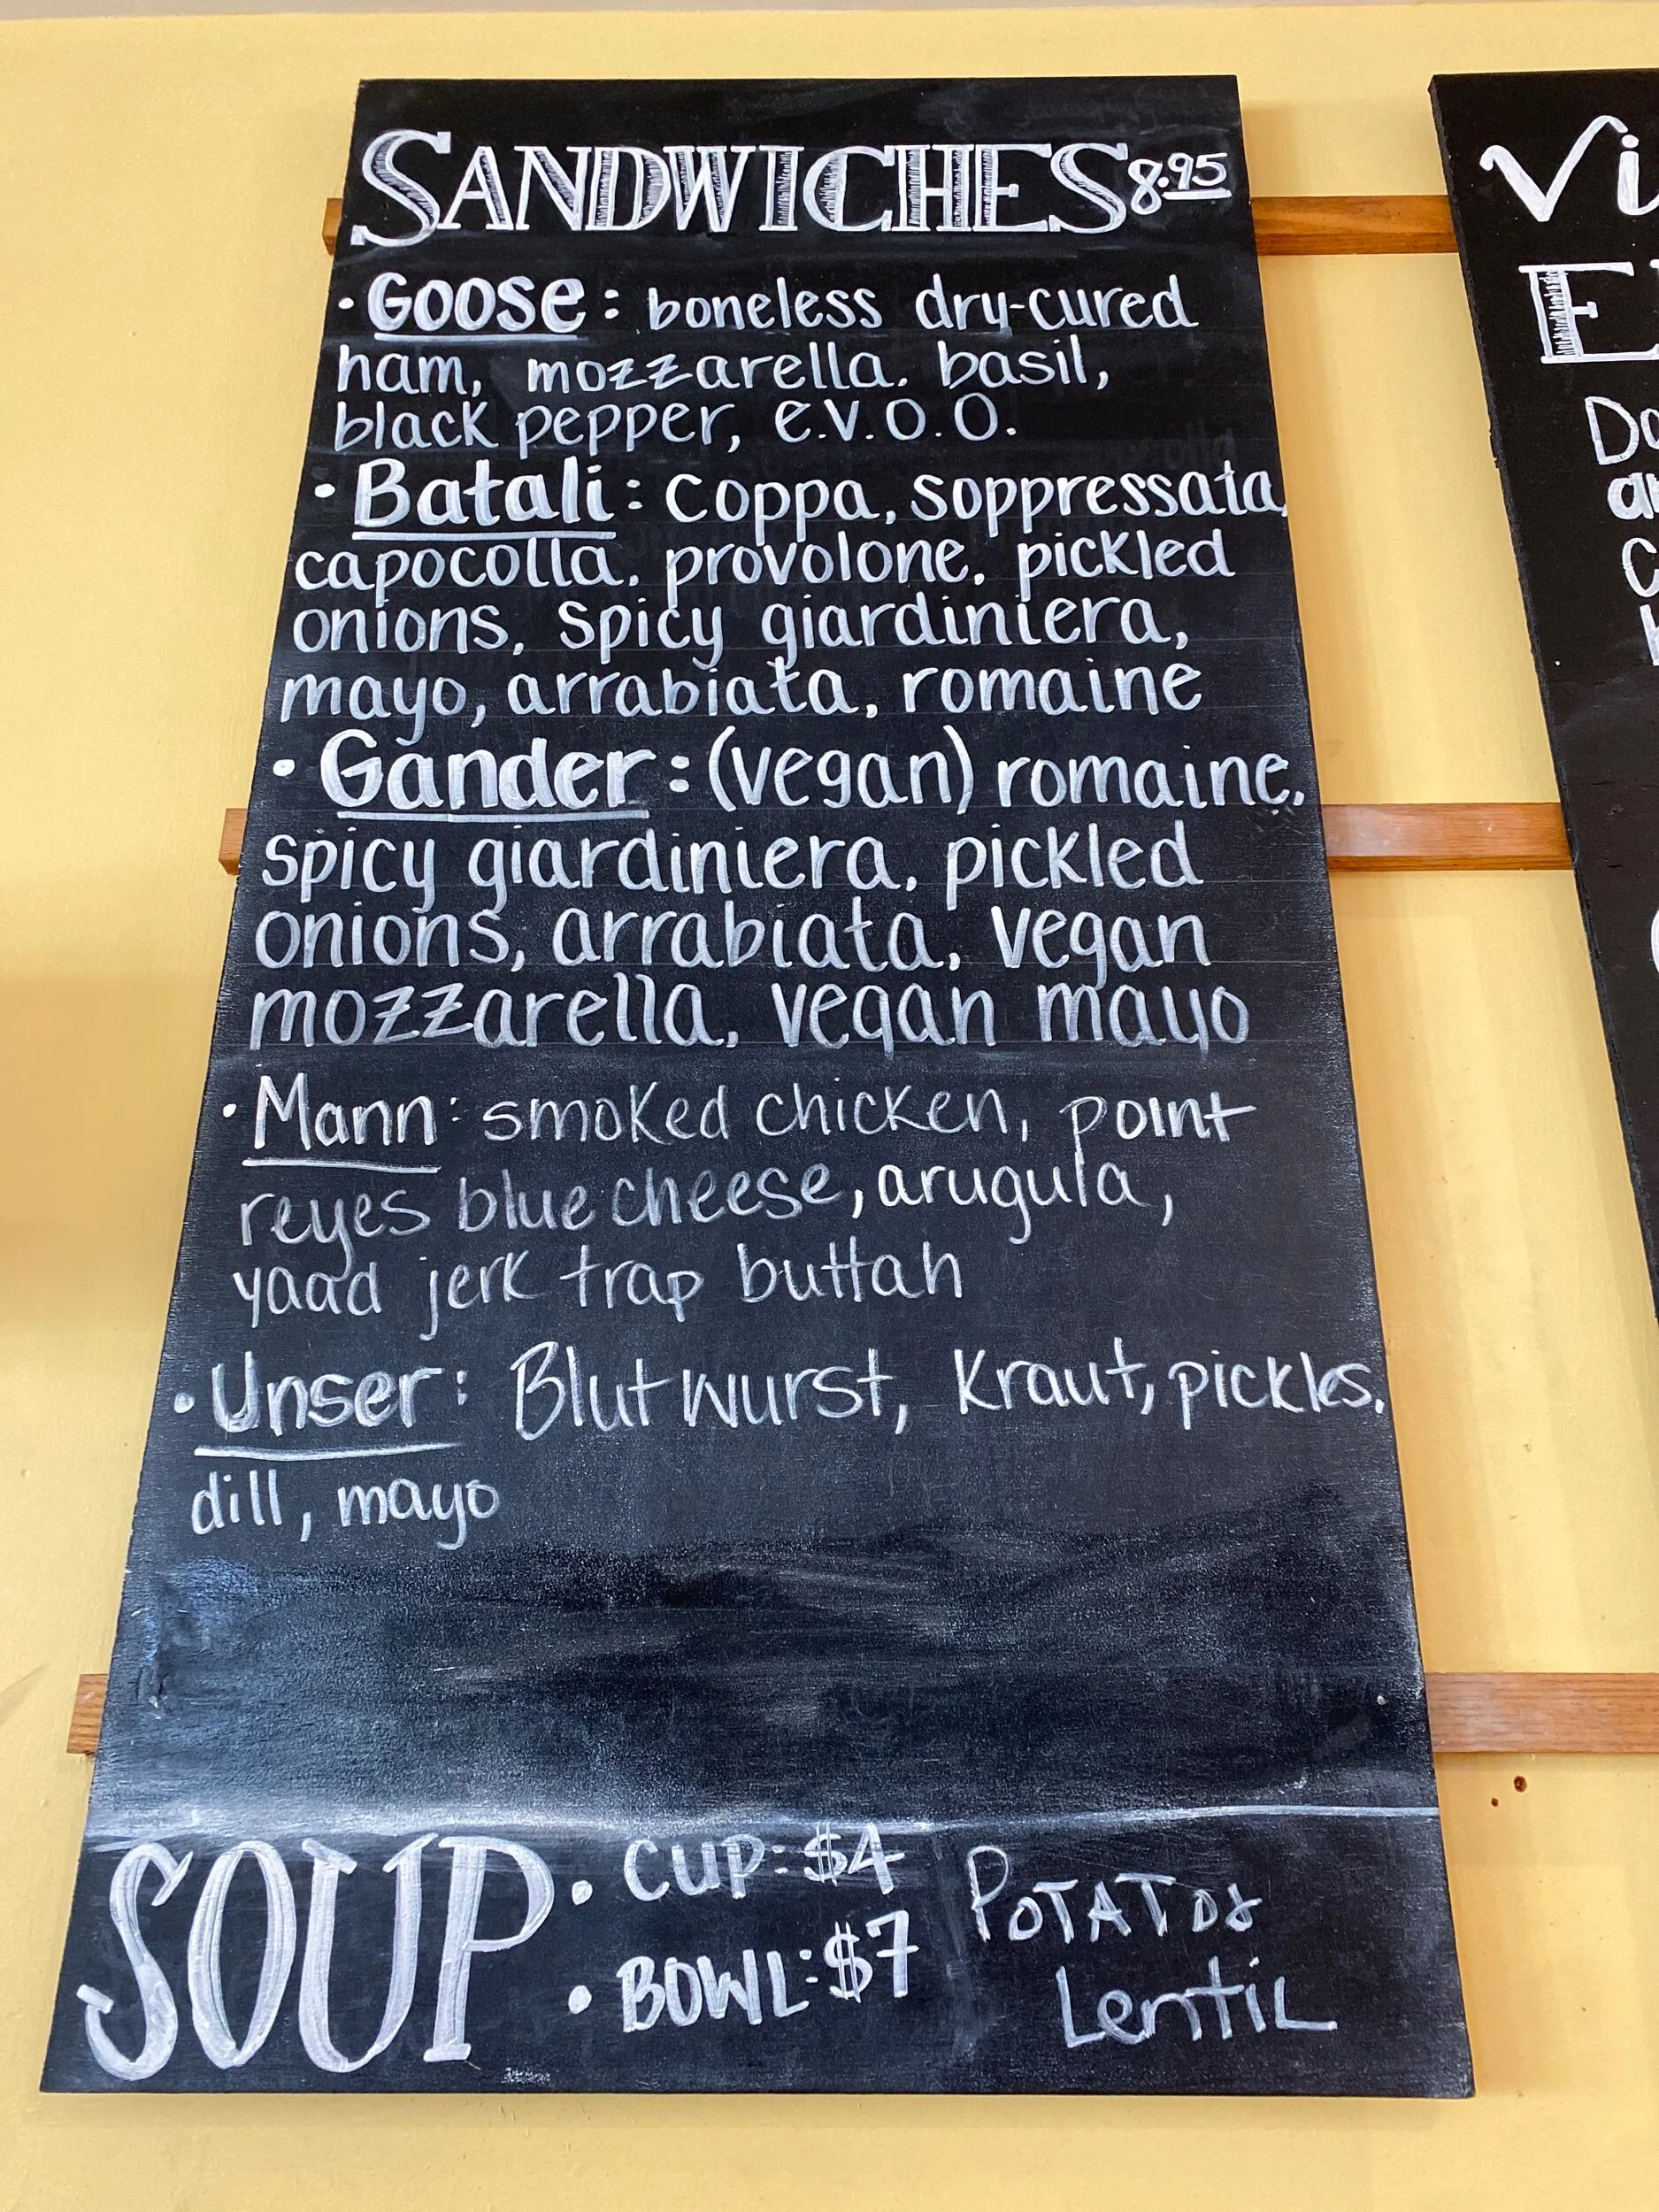 SANDWICHES 8.95
• Goose: boneless dry-cured
ham, mozzarella, basil,
black pepper, e.v.o.o.
• Batali: coppa, soppressata,
capocolla, provolone, pickled
onions, spicy giardiniera,
mayo, arrabiata, romaine
• Gander: (vegan) romaine,
spicy giardiniera, pickled
onions, arrabiata, vegan
mozzarella, vegan mayo
• Mann: smoked chicken, point
reyes blue cheese, arugula,
yaad jerk trap buttah
• Unser: Blutwurst, Kraut, pickles,
dill, mayo
SOUP • CUP: $4
• BOWL: $7
POTATO &
LentiL
Vi
E
Do